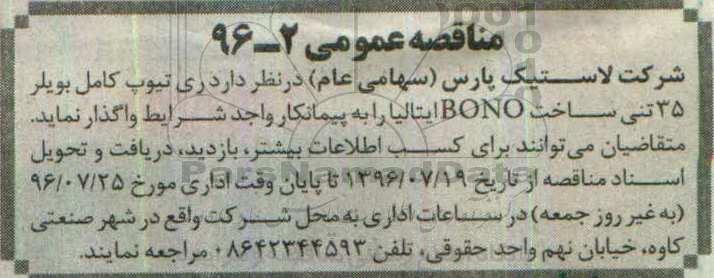 مناقصه عمومی ۲ــ۹۶
شرکت لاســتیک پارس (سهامی عام) درنظر دارد ری تیوپ کامل بویلر
۳۵ تنی ســاخت BONO ایتالیا را به پیمانکار واجد شــرایط واگذار نماید.
متقاضیان می‌توانند برای کســب اطلاعات بیشتر، بازدید، دریافت و تحویل
اســناد مناقصه از تاریخ ۱۳۹۶/۰۷/۱۹ تا پایان وقت اداری مورخ ۹۶/۰۷/۲۵
(به غیر روز جمعه) در ســاعات اداری به محل شــرکت واقع در شهر صنعتی
کاوه، خیابان نهم واحد حقوقی، تلفن ۰۸۶۴۲۳۴۴۵۹۳ مراجعه نمایند.
ParsNamadData